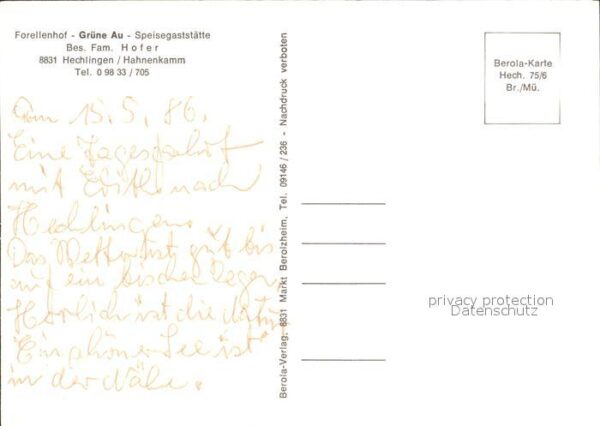 Forellenhof - Grüne Au - Speisegaststätte
Bes. Fam. Hofer
8831 Hechlingen / Hahnenkamm
Tel. 0 98 33 / 705
Am 15.5.86.
Eine Tagesfahrt
mit Edith nach
Hechlingen.
Das Wetter ist gut bis
auf ein bischen Regen.
Herrlich ist die Natur
Ein schöner See ist
in der Nähe.
Berola-Verlag, 8831 Markt Berolzheim, Tel. 09146 / 236 - Nachdruck verboten
Berola-Karte
Hech. 75/6
Br./Mü.
privacy protection
Datenschutz